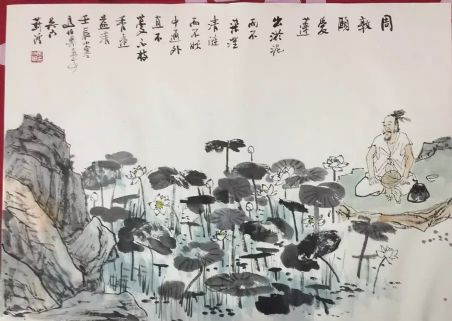 周
敦
頤
愛
蓮
出淤泥
而不
染濯
清漣
而不妖
中通外
直不
蔓不枝
香遠
益清
壬辰